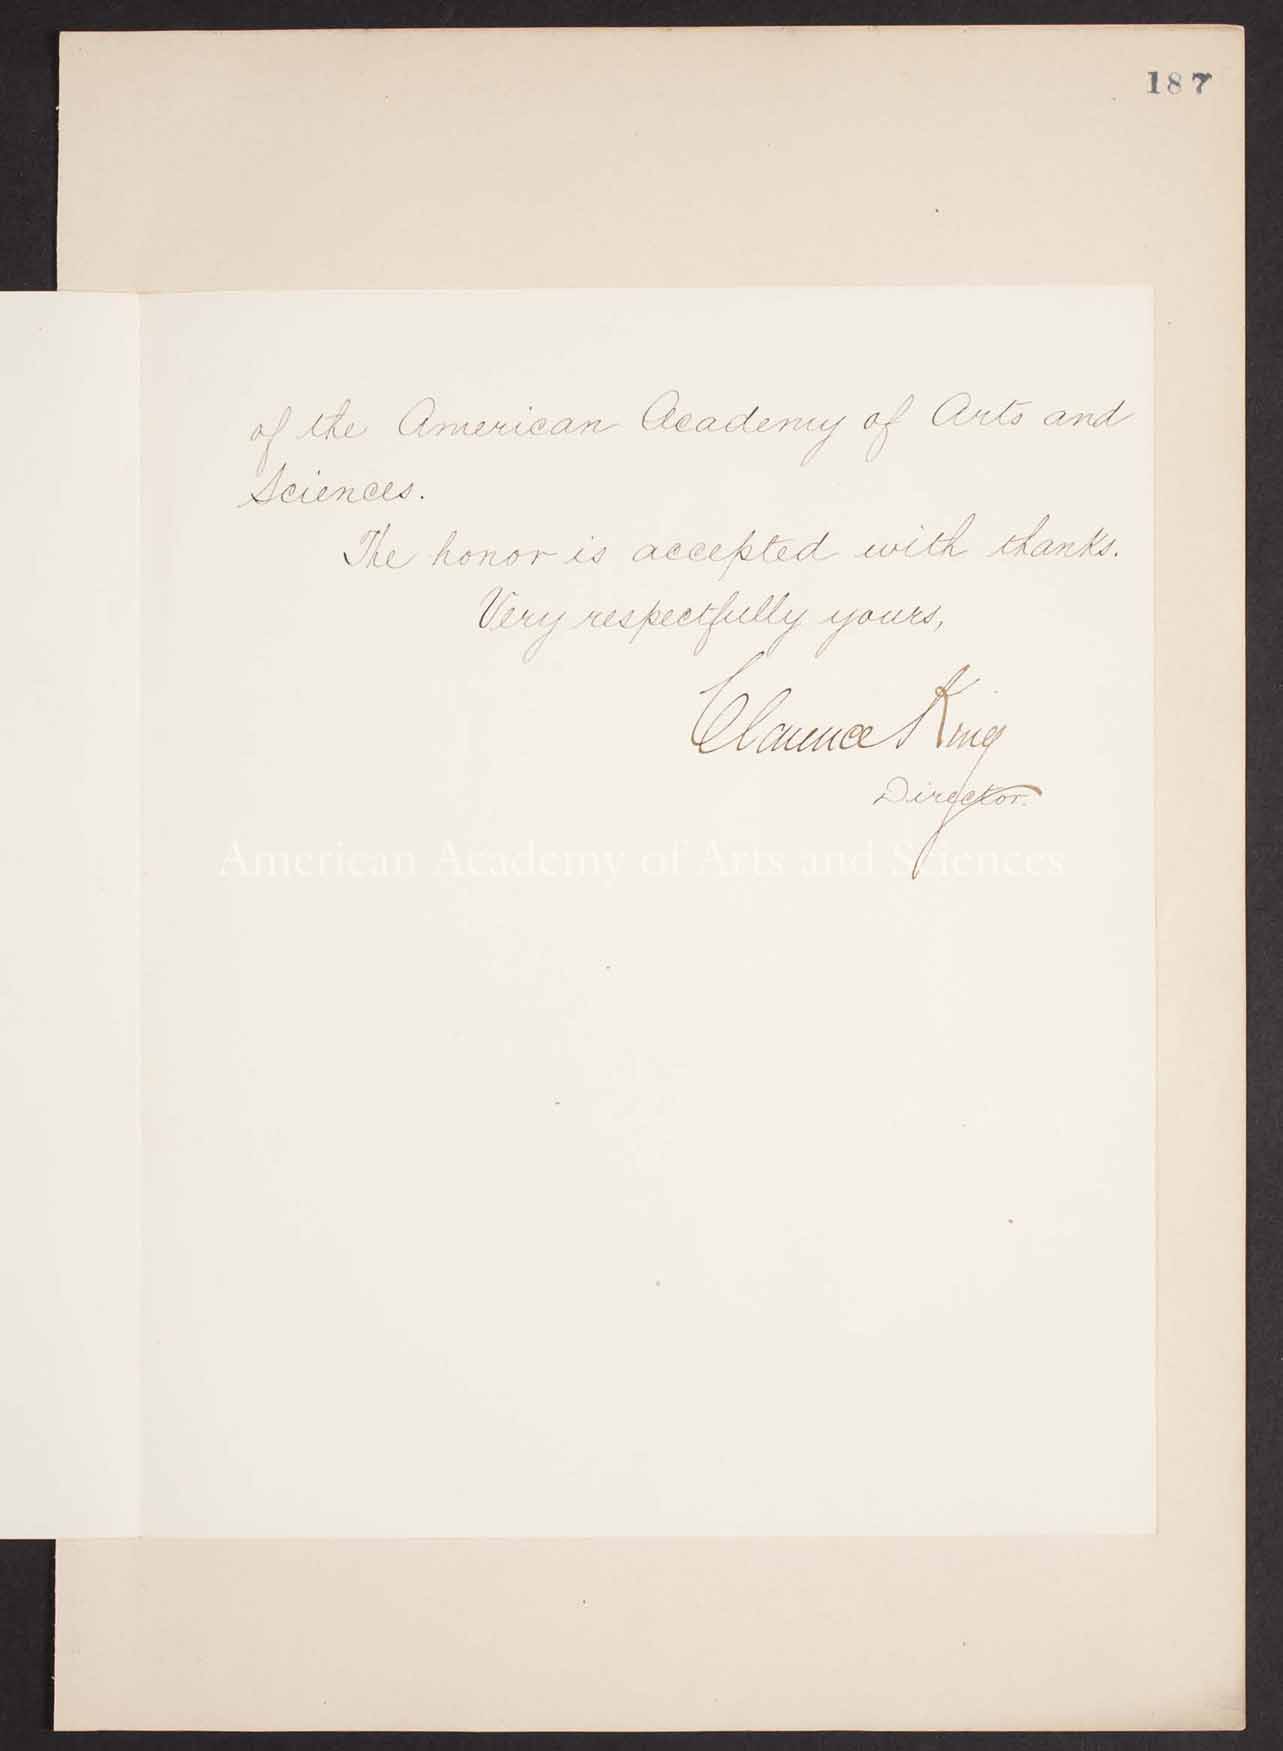 187
of the American Academy of Arts and
Sciences.
The honor is accepted with thanks.
Very respectfully yours,
Clarence King
Director.
American Academy of Arts and Sciences